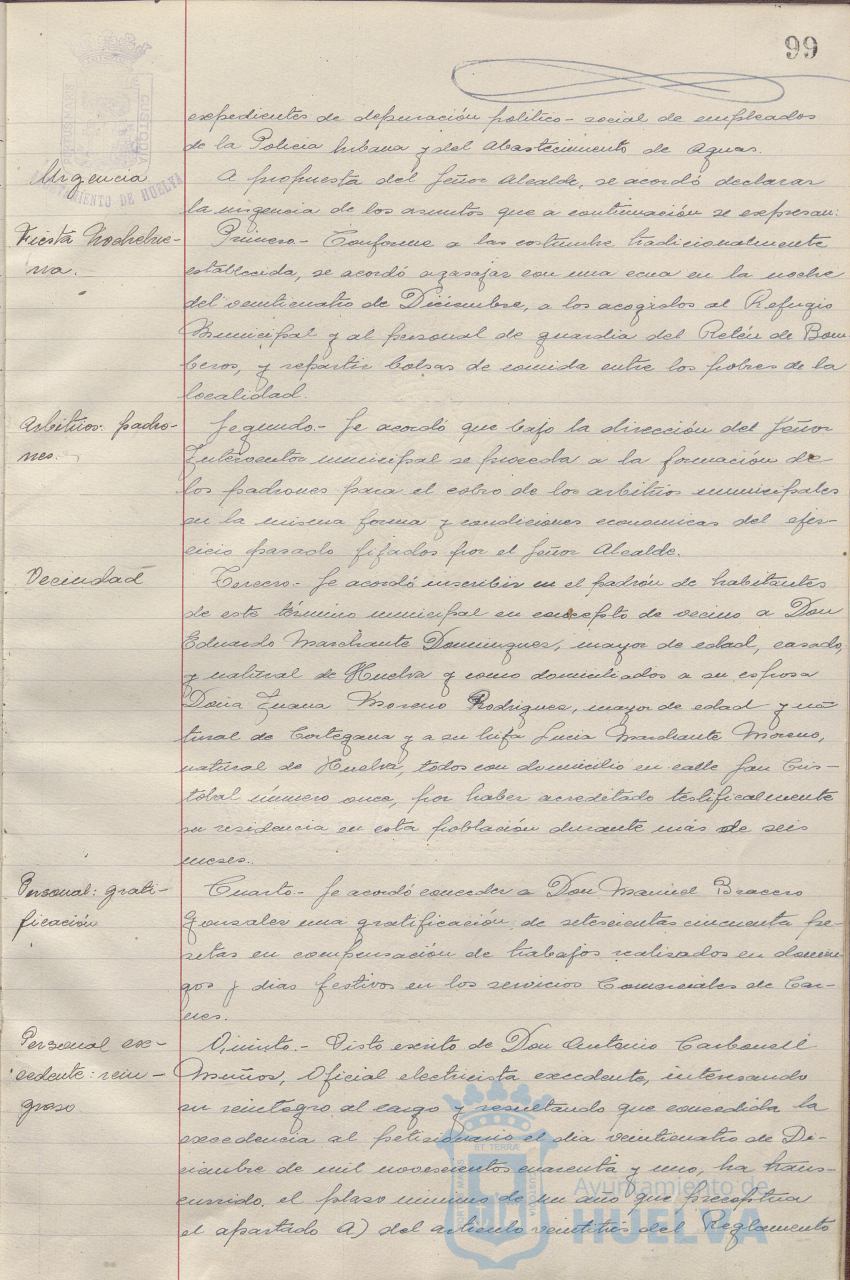 99
expedientes de depuración político-social de empleados
de la Policía Urbana y del Abastecimiento de Aguas.
Urgencia
A propuesta del Señor Alcalde, se acordó declarar
la urgencia de los asuntos que a continuación se expresan:
Fiesta Nochebue-
na.-
Primero.- Conforme a las costumbre tradicionalmente
establecida, se acordó agasajar con una cena en la noche
del veinticuatro de Diciembre, a los acogidos al Refugio
Municipal y al personal de guardia del Retén de Bom
beros, y repartir bolsas de comida entre los pobres de la
localidad.
Arbitrios: padro-
nes.-
Segundo.- Se acordó que bajo la dirección del Señor
Interventor municipal se proceda a la formación de
los padrones para el cobro de los arbitrios municipales
en la misma forma y condiciones economicas del ejer-
cicio pasado fijados por el Señor Alcalde.
Vecindad
Tercero.- Se acordó inscribir en el padrón de habitantes
de este término municipal en concepto de vecino a Don
Eduardo Marchante Dominguez, mayor de edad, casado,
y natural de Huelva y como domiciliados a su esposa
Doña Juana Moreno Rodriguez, mayor de edad y na
tural de Cortegana y a su hija Lucia Marchante Moreno,
natural de Huelva, todos con domicilio en calle San Cris-
tobal número once, por haber acreditado testificalmente
su residencia en esta población durante más de seis
meses.
Personal: grati-
ficación
Cuarto.- Se acordó conceder a Don Manuel Bracero
Gonzalez una gratificación de setecientas cincuenta pe-
setas en compensación de trabajos realizados en domin
gos y dias festivos en los servicios Comerciales de Car-
nes.
Personal exce-
dente: rein-
greso
Quinto.- Visto escrito de Don Antonio Carbonell
Muñoz, Oficial electricista excedente, interesando
su reintegro al cargo y resultando que concedida la
excedencia al peticionario el dia veinticuatro de Di-
ciembre de mil novecientos cuarenta y uno, ha trans-
currido el plazo minimo de un año que preceptua
el apartado A) del articulo veintitrés del Reglamento
Ayuntamiento de
HUELVA